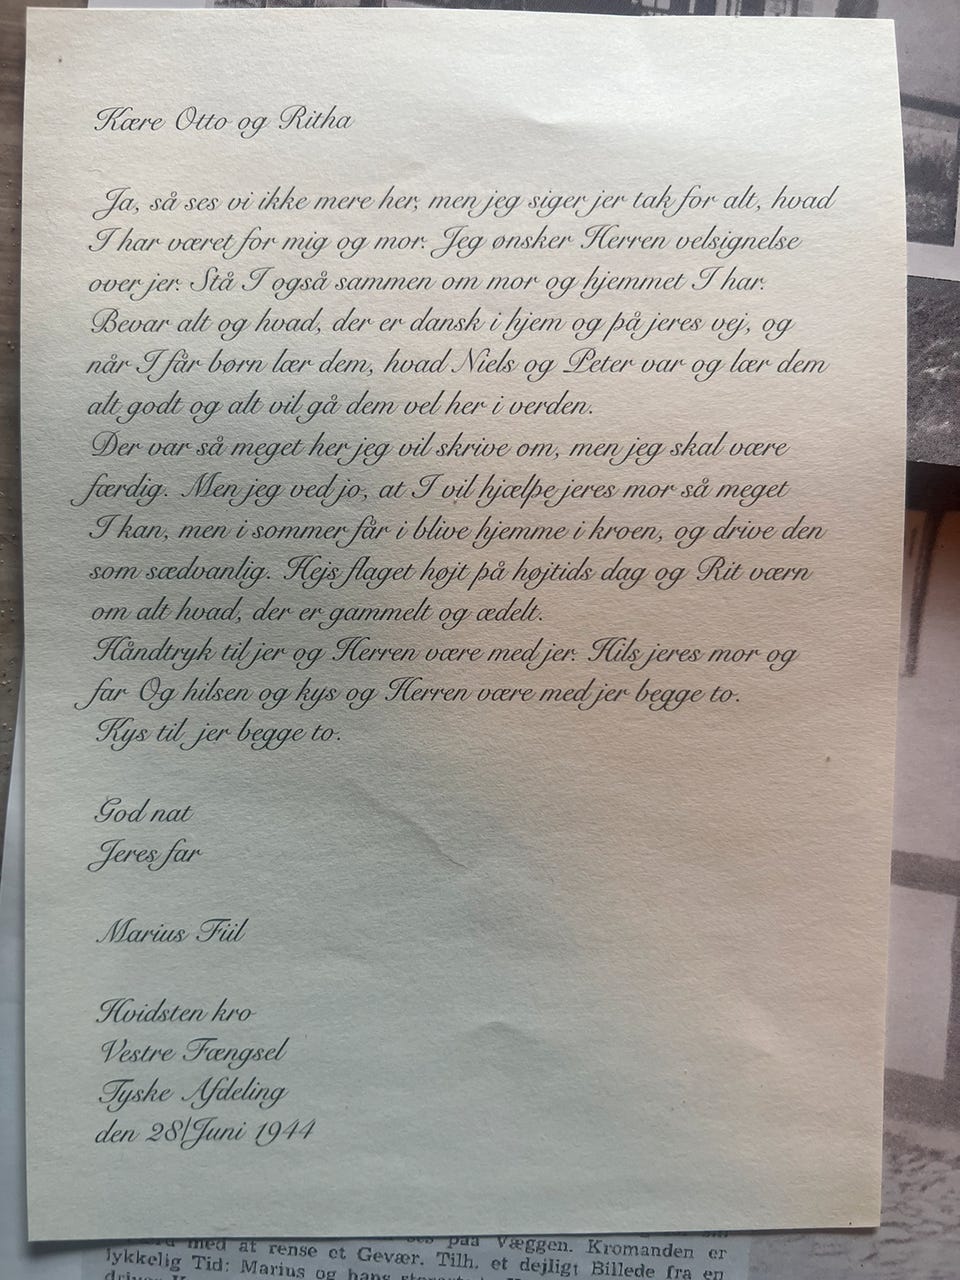 Kære Otto og Ritha
Ja, så ses vi ikke mere her, men jeg siger jer tak for alt, hvad
I har været for mig og mor. Jeg ønsker Herren velsignelse
over jer. Stå I også sammen om mor og hjemmet I har.
Bevar alt og hvad, der er dansk i hjem og på jeres vej, og
når I får børn lær dem, hvad Niels og Peter var og lær dem
alt godt og alt vil gå dem vel her i verden.
Der var så meget her jeg vil skrive om, men jeg skal være
færdig. Men jeg ved jo, at I vil hjælpe jeres mor så meget
I kan, men i sommer får i blive hjemme i kroen, og drive den
som sædvanlig. Hejs flaget højt på højtids dag og Rit værn
om alt hvad, der er gammelt og ædelt.
Håndtryk til jer og Herren være med jer. Hils jeres mor og
far Og hilsen og kys og Herren være med jer begge to.
Kys til jer begge to.
God nat
Jeres far
Marius Fiil
Hvidsten kro
Vestre Fængsel
Tyske Afdeling
den 28/Juni 1944
med at rense et Gevær. Tilh. et dejligt Billede fra en
paa Væggen. Kromanden er
lykkelig Tid: Marius og hans